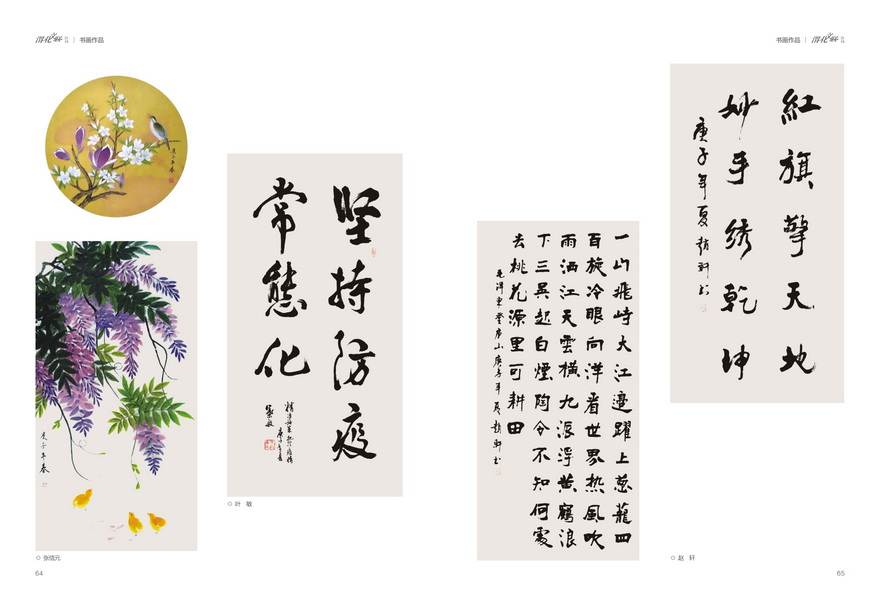 书画作品
庚子年春
庚子年春
坚持防疫
常態化
叶 敏
64
书画作品
紅旗擎天地
妙手绣乾坤
庚子年夏赵轩书
一山飛峙大江邊躍上葱蘢四
百旋冷眼向洋看世界热風吹
雨洒江天雲横九派浮黄鶴浪
下三吴起白煙陶令不知何處
去桃花源里可耕田
毛泽东登庐山庚子年夏赵轩书
赵 轩
65